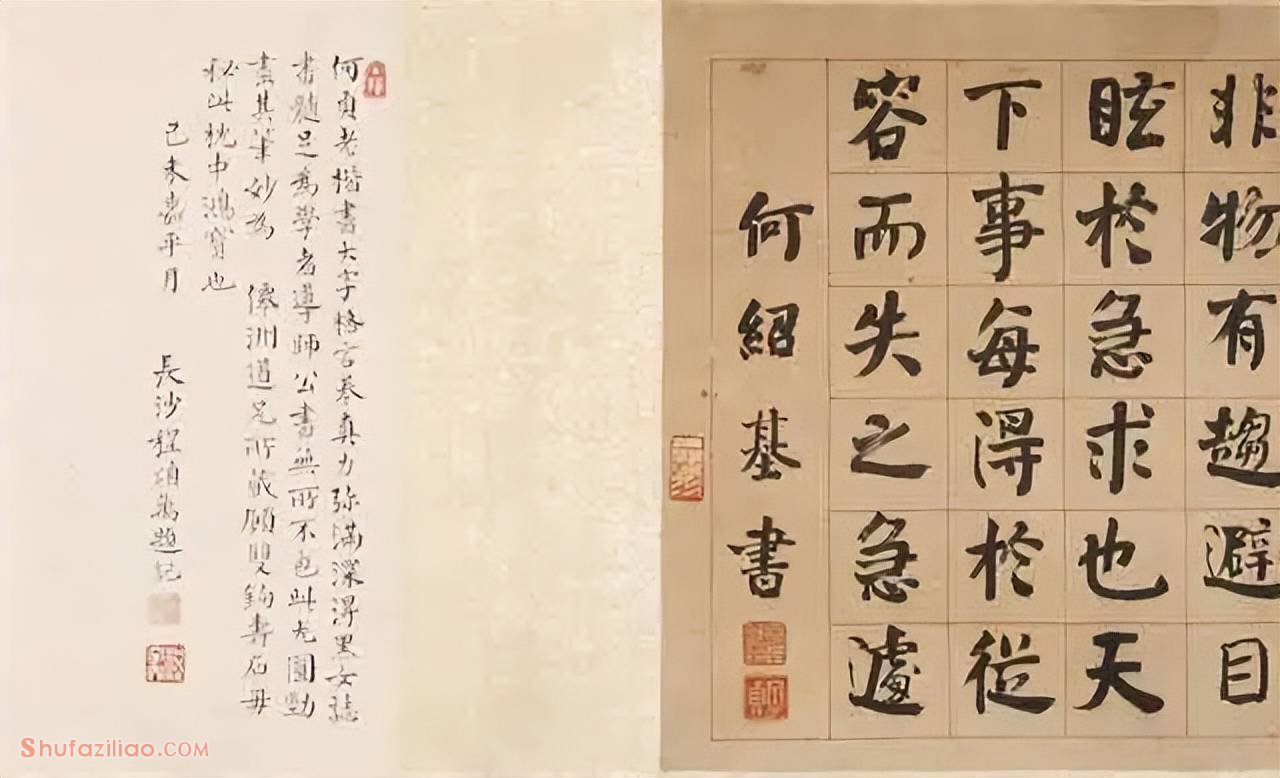 非物有趨避目
眩於急求也天
下事每得於從
容而失之急遽
何紹基書
何貞老楷書大字格言卷真力弥滿深得黑女誌
書髓足為學者導師公書無所不包此尤圓勁
其筆妙為 僊洲道兄所藏願雙鉤壽石毋
秘此枕中鴻寶也
己未嘉平月 長沙程頌萬題記
Shufaziliao.COM